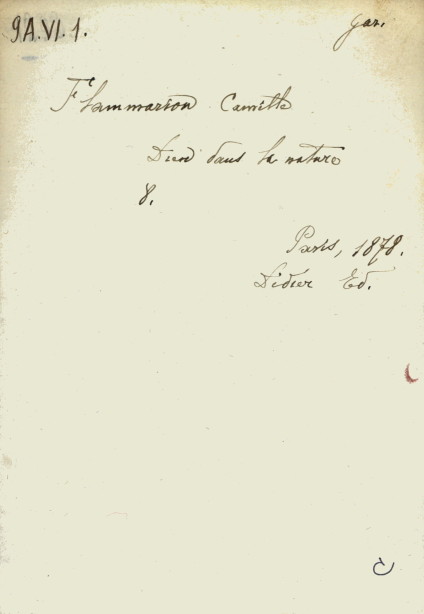 9A.VI.1.
gar.
Flammarion Camille
Dieu dans la nature
8.
Paris, 1878.
Didier Ed.